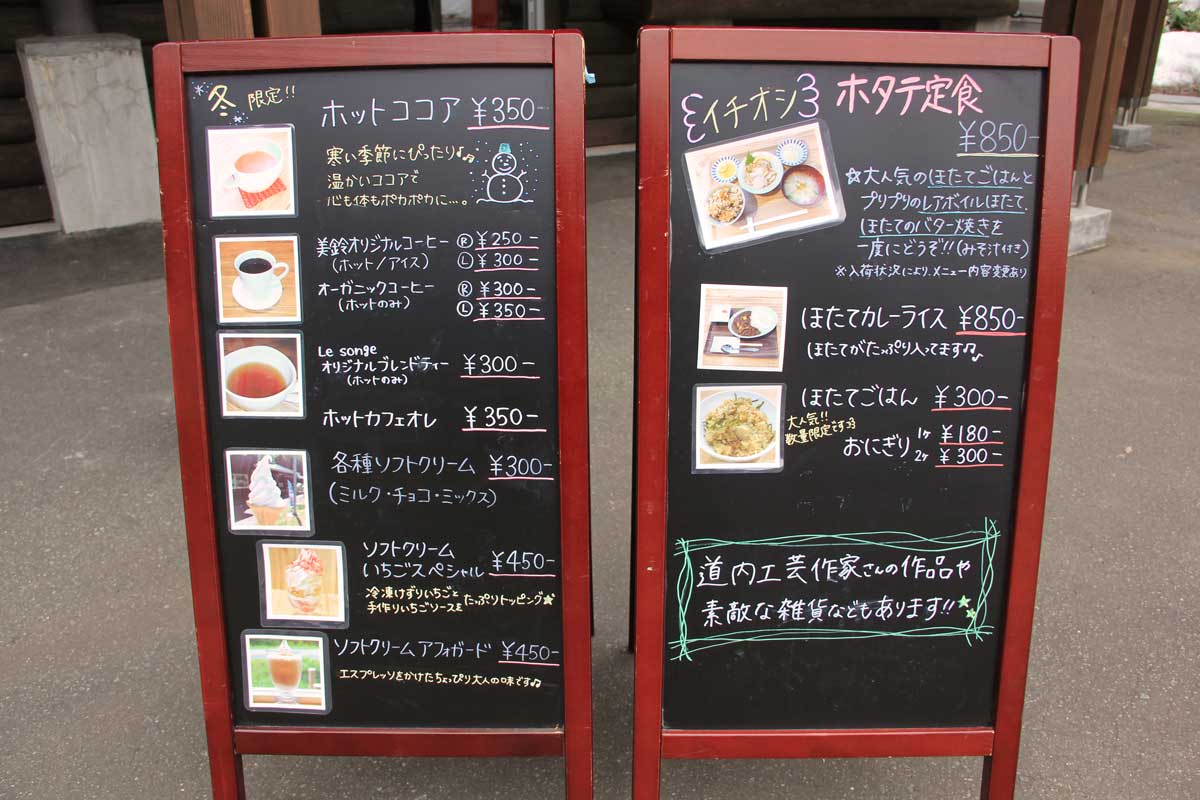 冬 限定!!
ホットココア ¥350-
寒い季節にぴったり♪♪
温かいココアで
心も体もポカポカに…。
美鈴オリジナルコーヒー Ⓡ ¥250-
(ホット/アイス) Ⓛ ¥300-
オーガニックコーヒー Ⓡ ¥300-
(ホットのみ) Ⓛ ¥350-
Le songe
オリジナルブレンドティー ¥300-
(ホットのみ)
ホットカフェオレ ¥350-
各種ソフトクリーム ¥300-
(ミルク・チョコ・ミックス)
ソフトクリーム
いちごスペシャル ¥450-
冷凍けずりいちごと
手作りいちごソースをたっぷりトッピング★
ソフトクリームアフォガード ¥450-
エスプレッソをかけたちょっぴり大人の味です♫
イチオシ ホタテ定食
¥850-
☆大人気のほたてごはんと
プリプリのレアボイルほたて、
ほたてのバター焼きを
一度にどうぞ!!(みそ汁付き)
※入荷状況により、メニュー内容変更あり
ほたてカレーライス ¥850-
ほたてがたっぷり入ってます♫♪
ほたてごはん ¥300-
大人気!!
数量限定です
おにぎり 1ケ ¥180-
2ケ ¥300-
道内工芸作家さんの作品や
素敵な雑貨などもあります!!